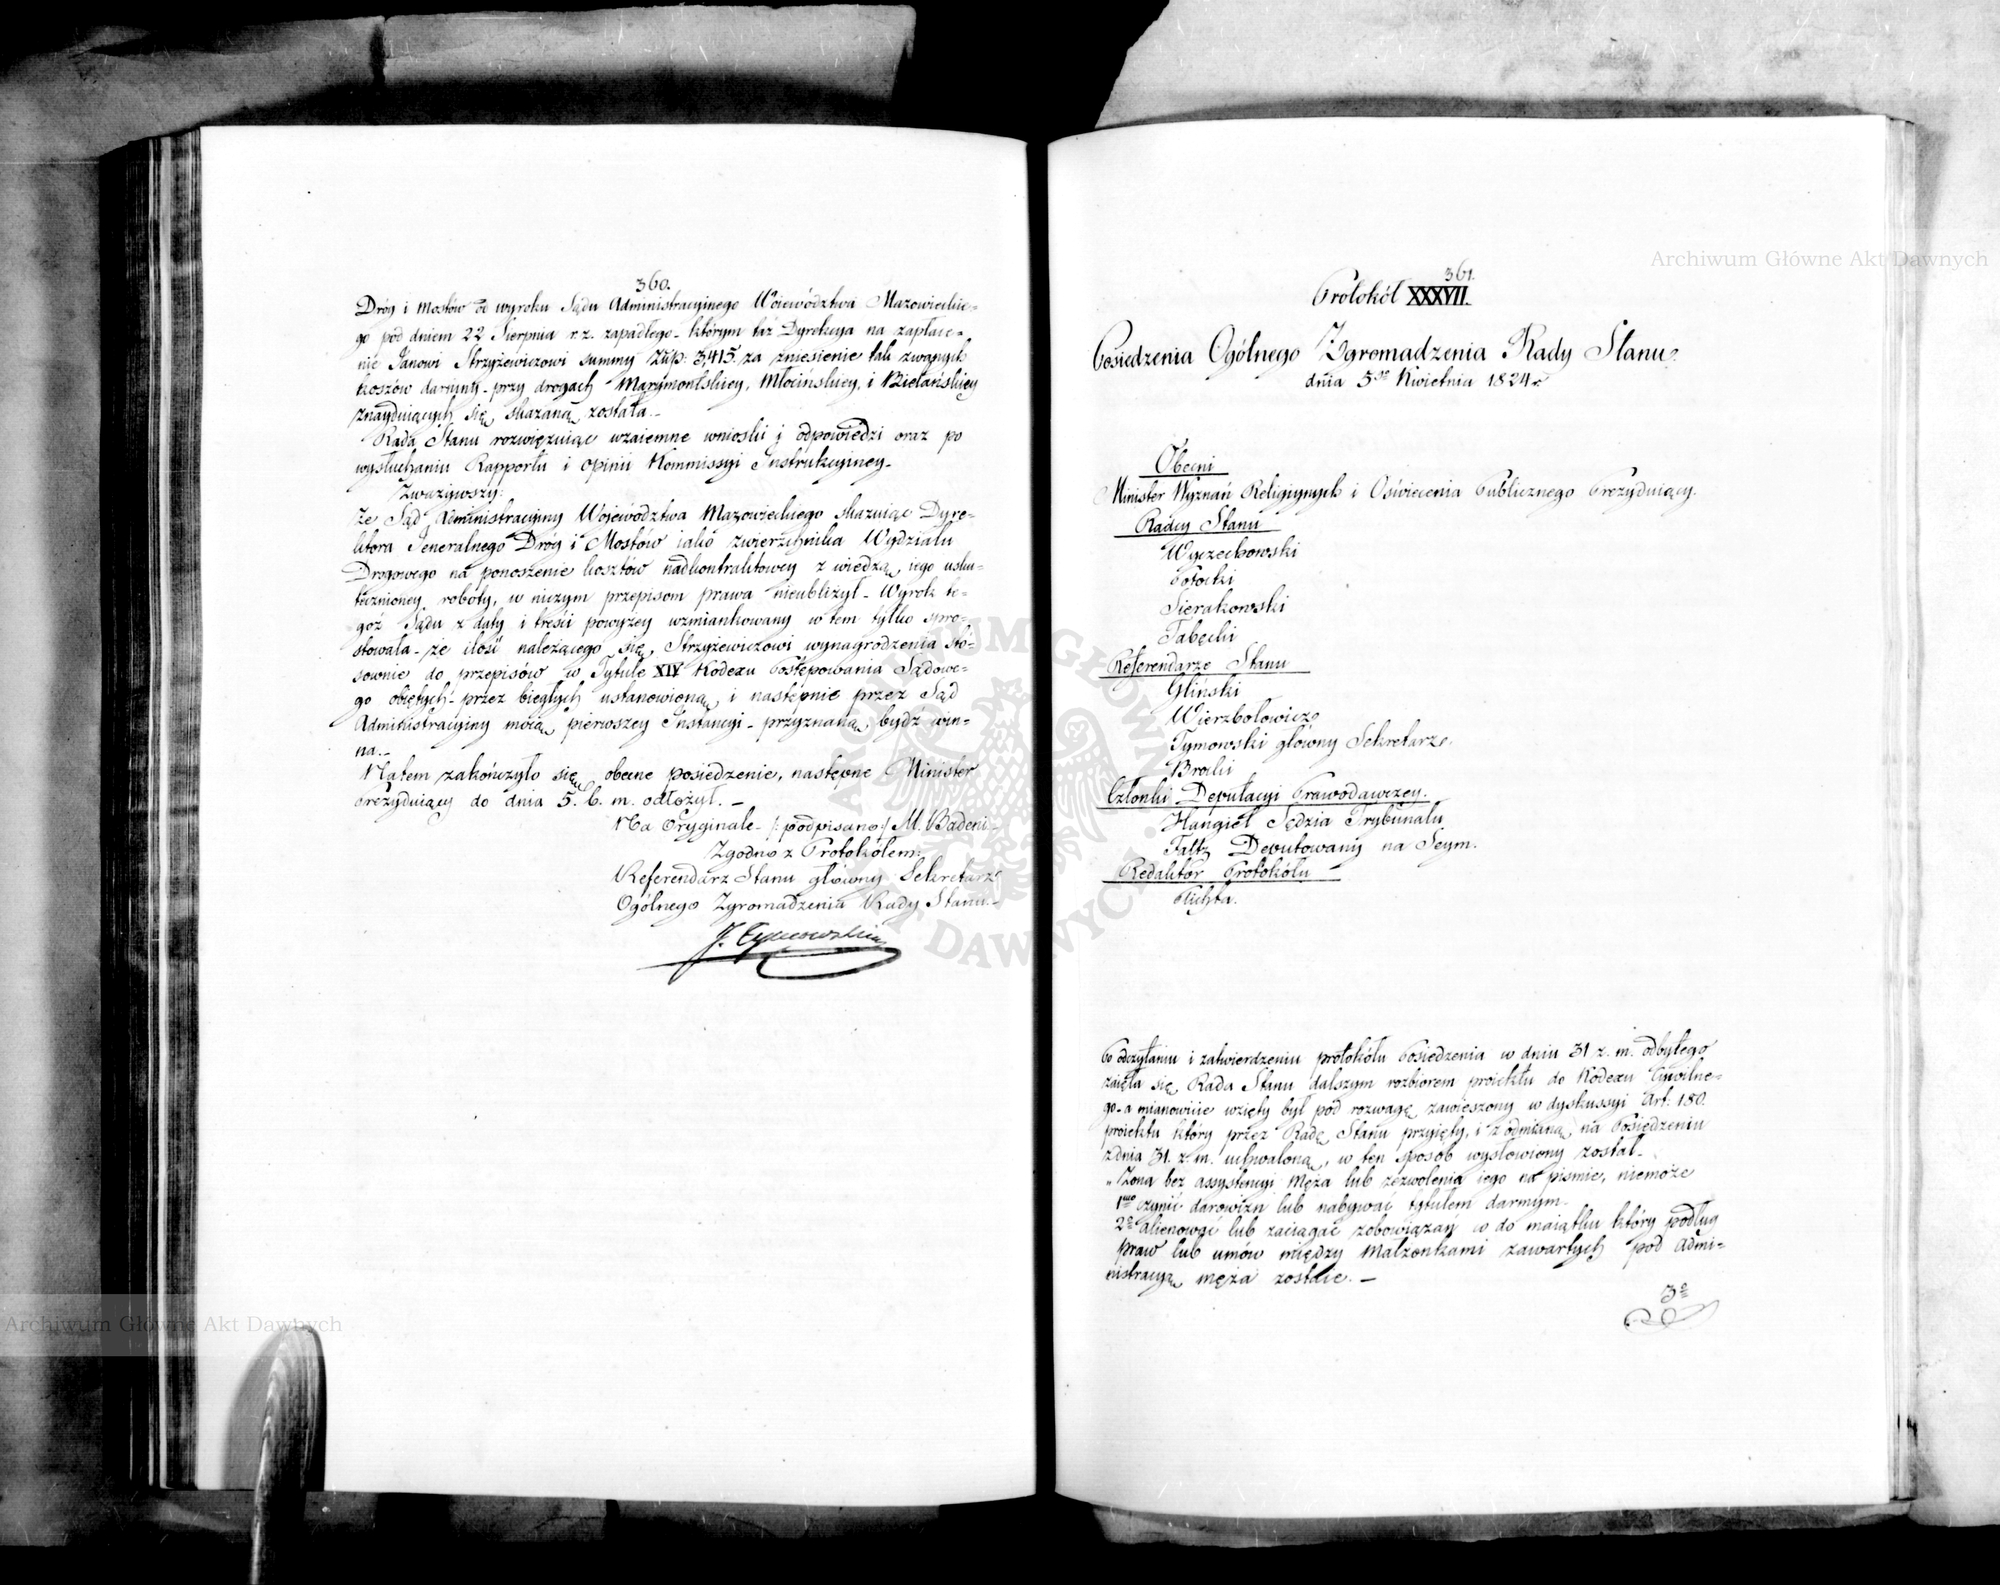 360.
Dróg i Mostów od wyroku Sądu Administracyinego Województwa Mazowieckie-
go pod dniem 22 Sierpnia r. z. zapadłego - którym taż Dyrekcya na zapłace-
nie Janowi Strzyżewiczowi summy Złp: 3,415. za zniesienie tak zwanych
koszów darniny - przy drogach Marymontskiey, Młocińskiey, i Bielańskiey
znayduiących się, skazaną została. -
Rada Stanu rozwięzuiąc wzaiemne wnioski i odpowiedzi oraz po
wysłuchaniu Rapportu i opinii Kommissyi Instrukcyiney -
Zważywszy:
Że Sąd Administracyiny Województwa Mazowieckiego skazuiąc Dyre-
ktora Jeneralnego Dróg i Mostów iako zwierzchnika Wydziału
Drogowego na ponoszenie kosztów nadkontraktowey z wiedzą iego usku-
tecznioney roboty, w niczym przepisom prawa nieubliżył - Wyrok te-
goż Sądu z daty i treści powyżey wzmiankowany w tem tylko spro-
stowała - że ilość należącego się Strzyżewiczowi wynagrodzenia stó-
sownie do przepisów w Tytule XIV Kodexu Postępowania Sądowe-
go obiętych - przez biegłych ustanowioną, i następnie przez Sąd
Administracyiny mocą pierwszey Instancyi - przyznaną bydź win-
na. -
Natem zakończyło się obecne posiedzenie, następne Minister
Prezyduiący do dnia 5. b. m. odłożył. -
Na Oryginale - /: podpisano :/ M. Badeni -
Zgodno z Protokółem:
Referendarz Stanu główny Sekretarz
Ogólnego Zgromadzenia Rady Stanu. -
J. Tymowski
361.
Protokół XXXVII.
Posiedzenia Ogólnego Zgromadzenia Rady Stanu
dnia 5go Kwietnia 1824 r.
Obecni
Minister Wyznań Religiynych i Oświecenia Publicznego Prezyduiący.
Radcy Stanu
Wyczechowski
Potocki
Sierakowski
Tabęcki
Referendarze Stanu
Gliński
Wierzbołowicz
Tymowski główny Sekretarz.
Brocki
Członki Deputacyi Prawodawczey.
Hangiel Sędzia Trybunału
Faltz Deputowany na Seym.
Redaktor Protokółu
Plichta.
Po odczytaniu i zatwierdzeniu protokółu Posiedzenia w dniu 31 z. m. odbytego
zaięła się Rada Stanu dalszym rozbiorem proiektu do Kodexu Cywilne-
go - a mianowicie wzięty był pod rozwagę zawieszony w dyskussyi Art: 180.
proiektu który przez Radę Stanu przyięty, i z odmianą na Posiedzeniu
z dnia 31. z. m. uchwaloną, w ten sposób wysłowiony został -
„Żona bez assystencyi Męża lub zezwolenia iego na piśmie, niemoże
1mo czynić darowizn lub nabywać tytułem darmym.
2o alienować lub zaciągać zobowiązań co do maiątku który podług
praw lub umów między Małżonkami zawartych pod Admi-
nistracyą męża zostaie. -
3o
Archiwum Główne Akt Dawnych
Archiwum Główne Akt Dawnych
ARCHIWUM GŁÓWNE AKT DAWNYCH